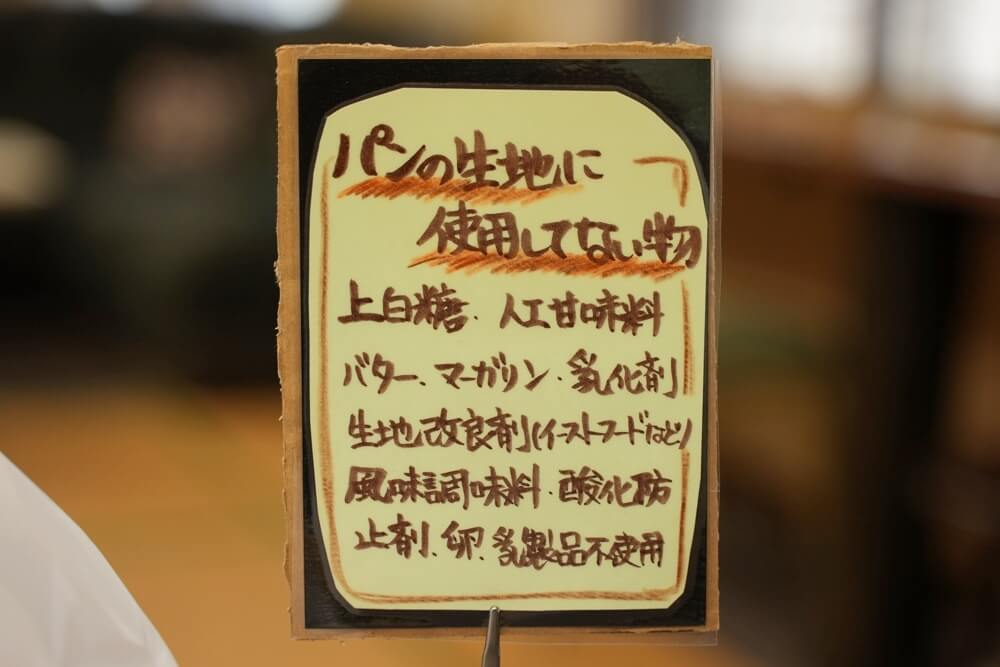 パンの生地に
使用してない物
上白糖、人工甘味料
バター、マーガリン・乳化剤
生地改良剤(イーストフードなど)
風味調味料・酸化防
止剤、卵、乳製品不使用